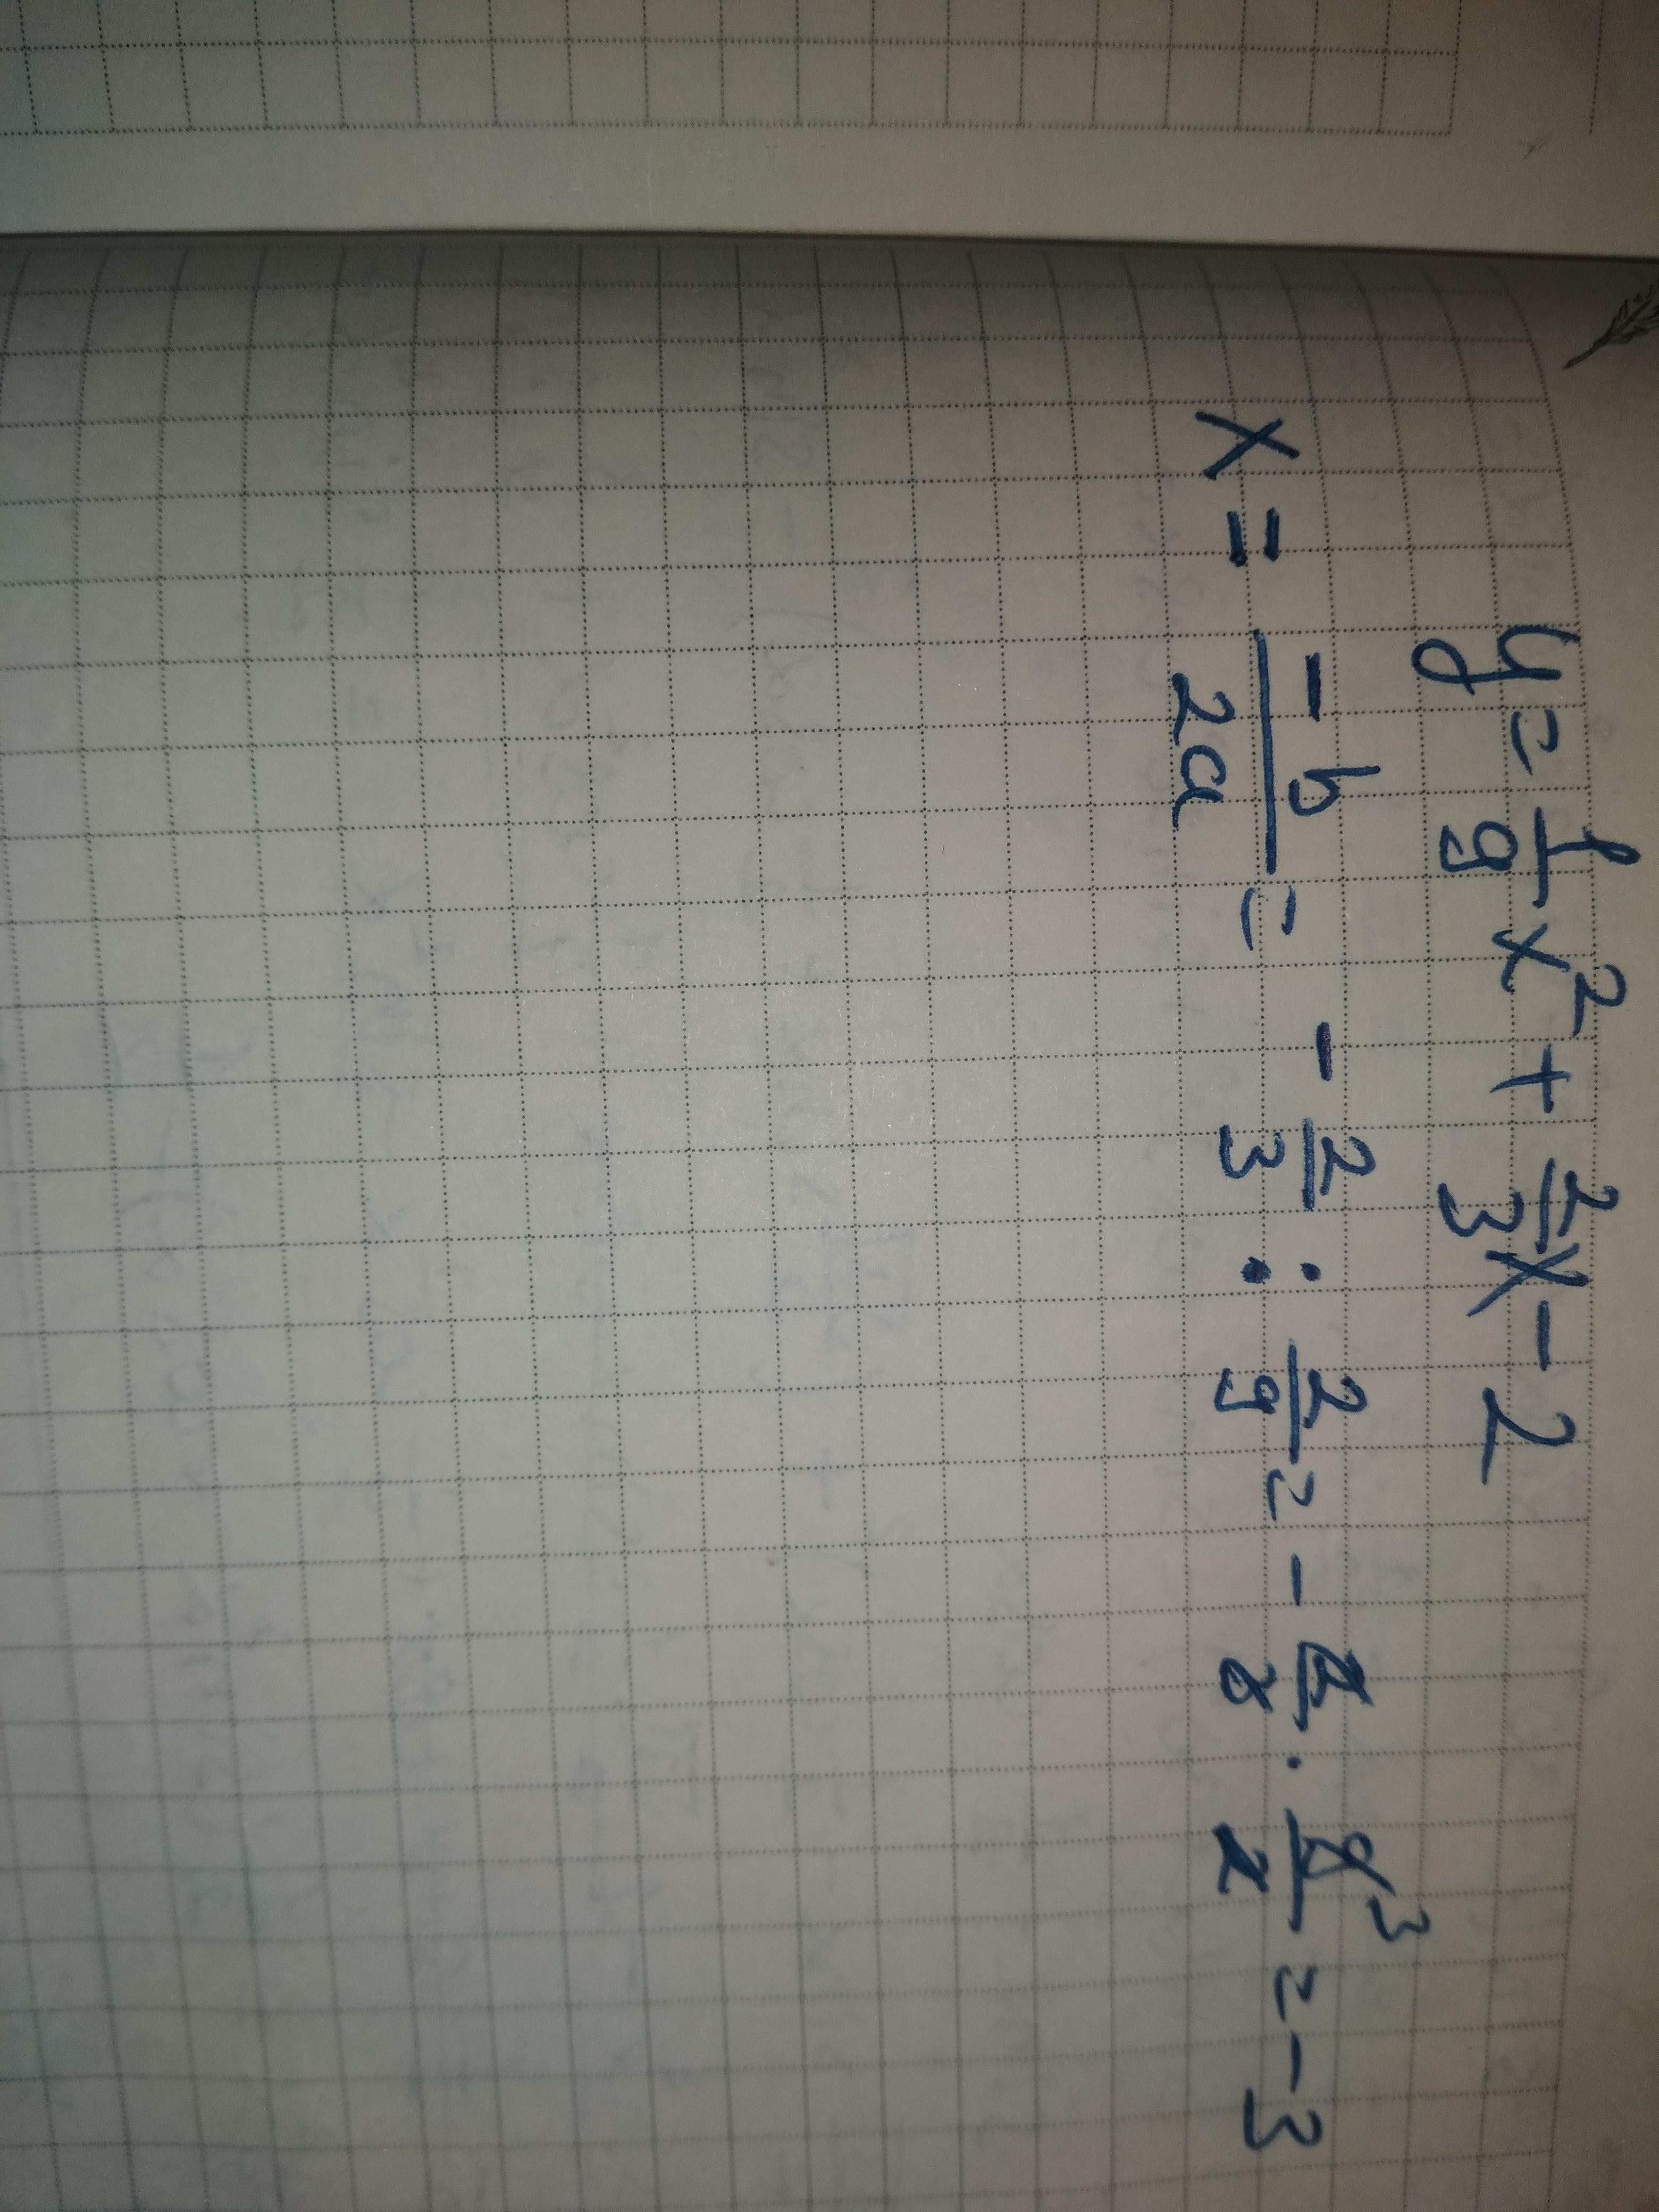 y = 1/9 x² + 2/3 x - 2
x = -b/2a = - 2/3 : 2/9 = - 2/3 · 9³/2 = - 3